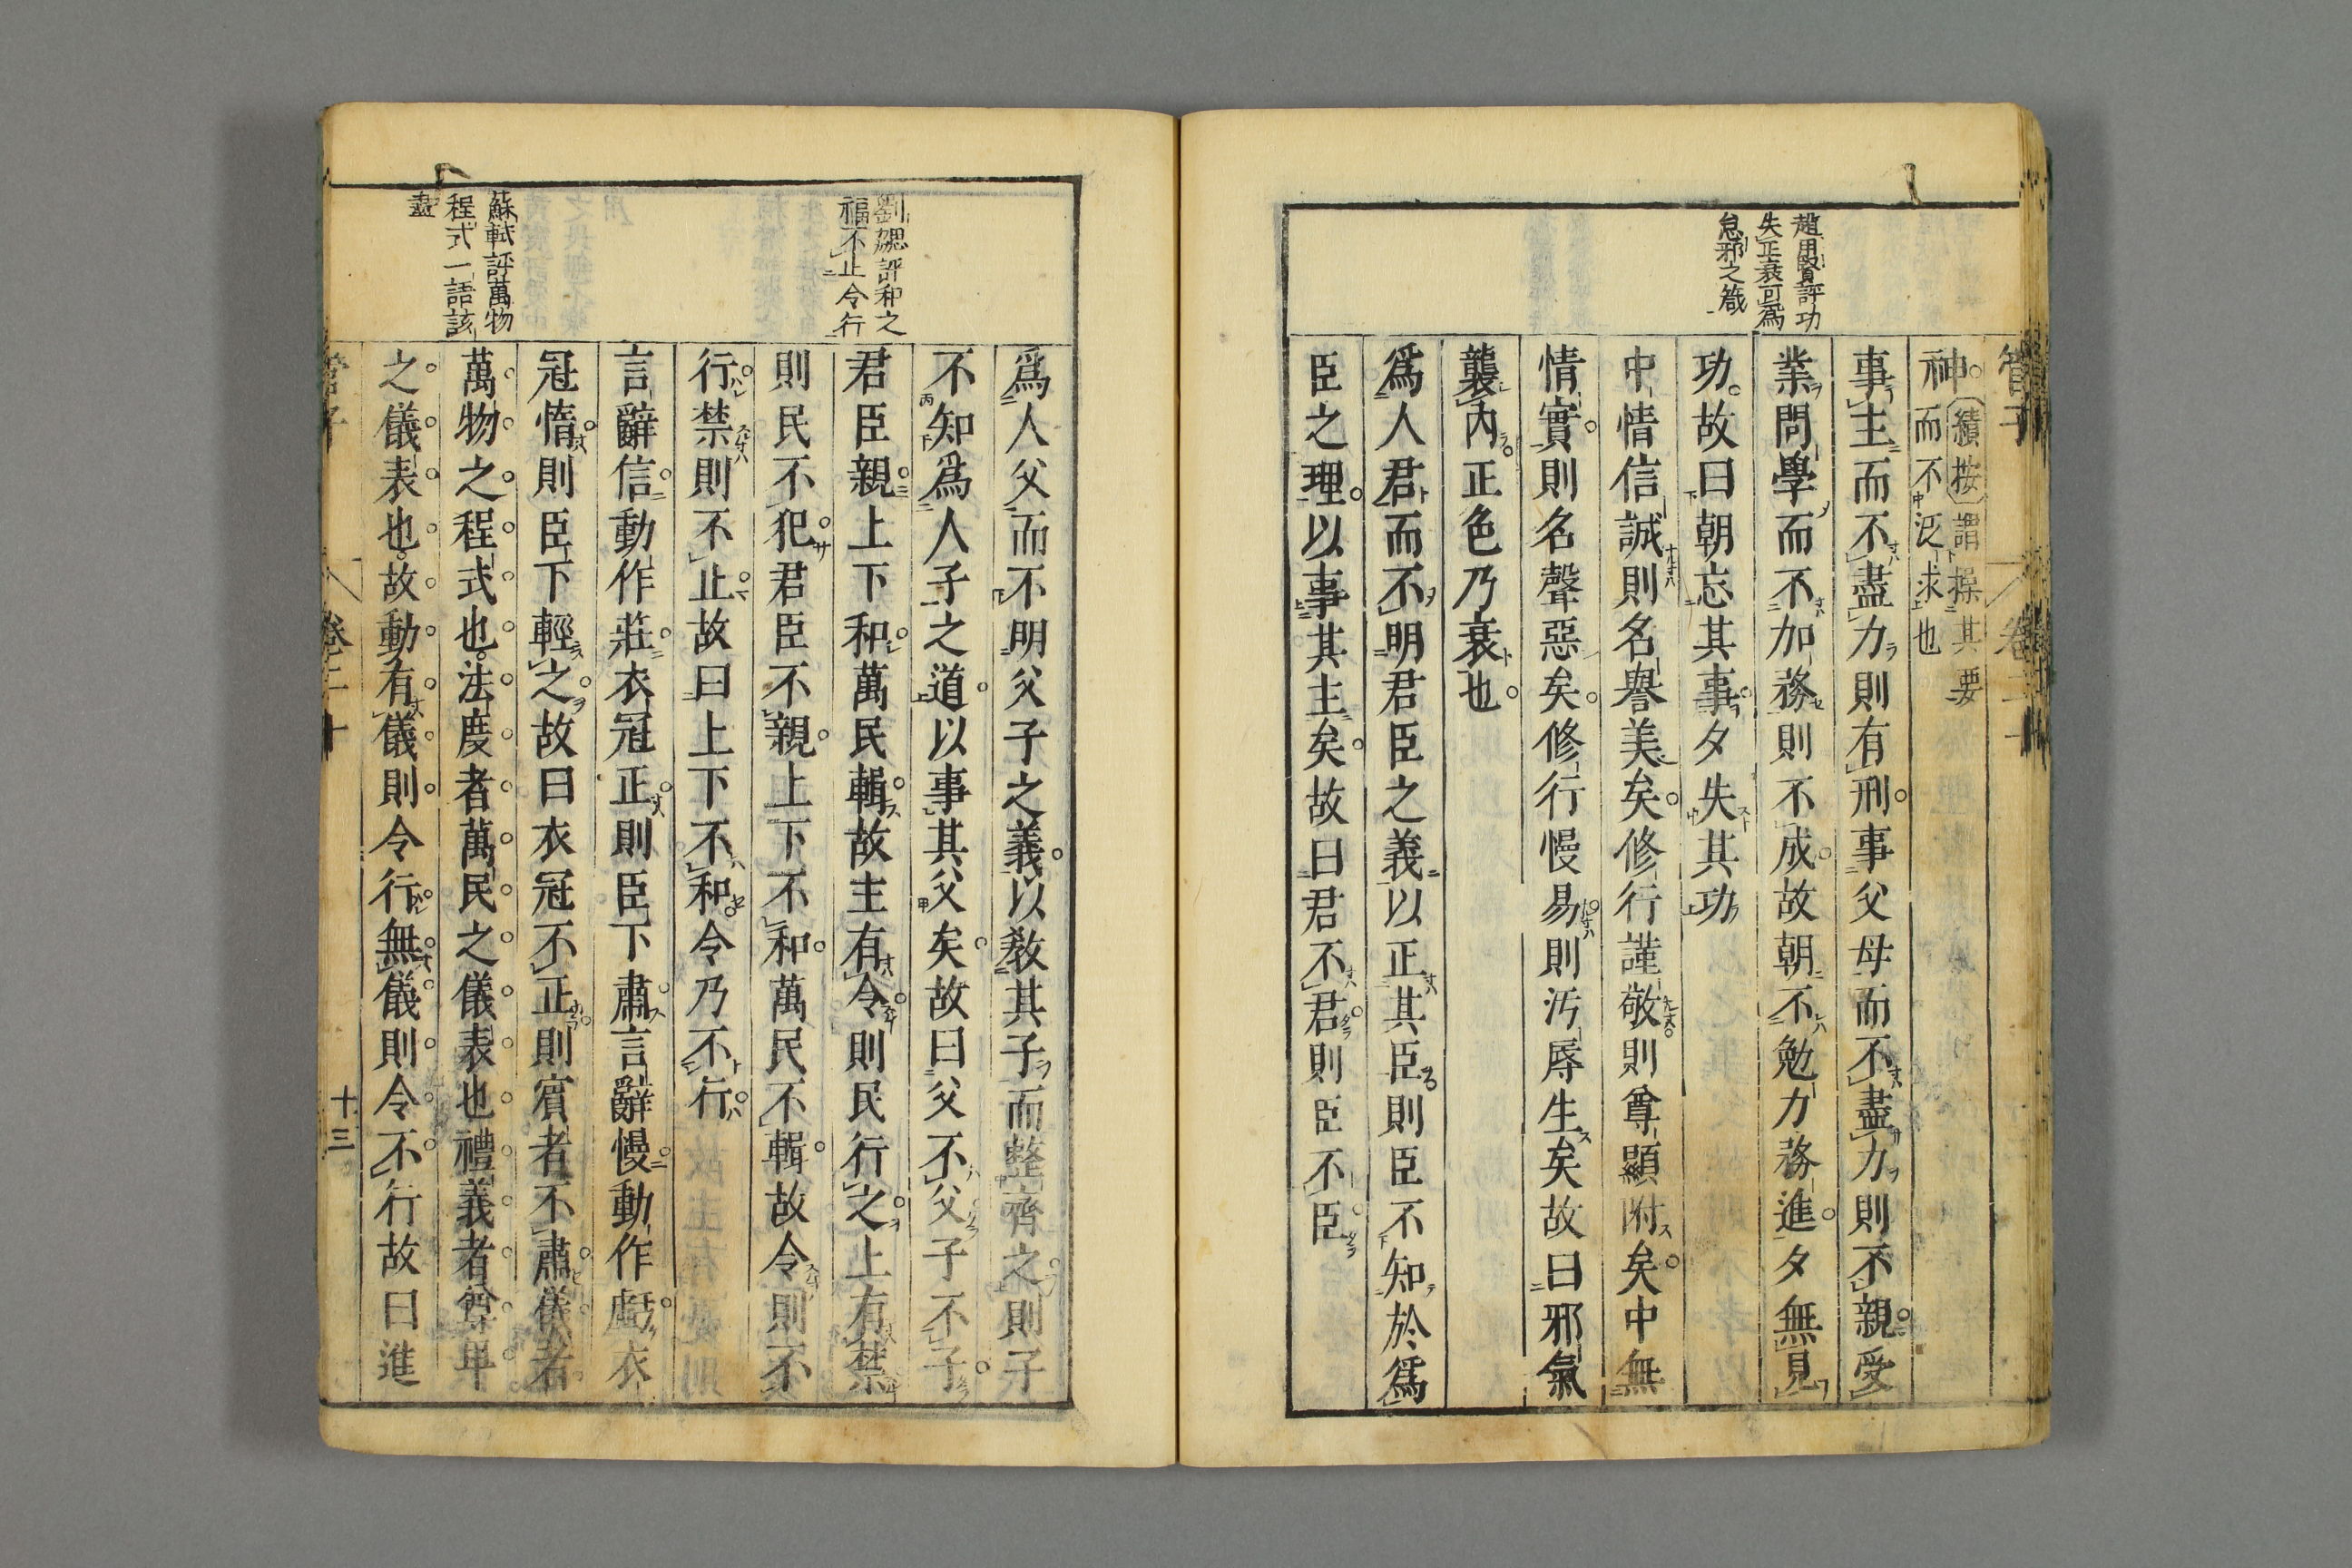 管子
卷二十
趙用賢評功
失正衰可爲
怠邪之箴
神
續按謂操其要
而不泛求也
事主而不盡力則有刑事父母而不盡力則不親受
業問學而不加務則不成故朝不勉力務進夕無見
功故曰朝忘其事夕失其功
中情信誠則名譽美矣修行謹敬則尊顯附矣中無
情實則名聲惡矣修行慢易則汚辱生矣故曰邪氣
襲內正色乃衰也
爲人君而不明君臣之義以正其臣則臣不知於爲
臣之理以事其主矣故曰君不君則臣不臣
劉勰評和之
福不止令行
蘇軾評萬物
程式一語該
盡
爲人父而不明父子之義以敎其子而整齊之則子
不知爲人子之道以事其父矣故曰父不父子不子
君臣親上下和萬民輯故主有令則民行之上有禁
則民不犯君臣不親上下不和萬民不輯故令則不
行禁則不止故曰上下不和令乃不行
言辭信動作莊衣冠正則臣下肅言辭慢動作虧衣
冠惰則臣下輕之故曰衣冠不正則賓者不肅儀者
萬物之程式也法度者萬民之儀表也禮義者尊卑
之儀表也故動有儀則令行無儀則令不行故曰進
管子
卷二十
十三